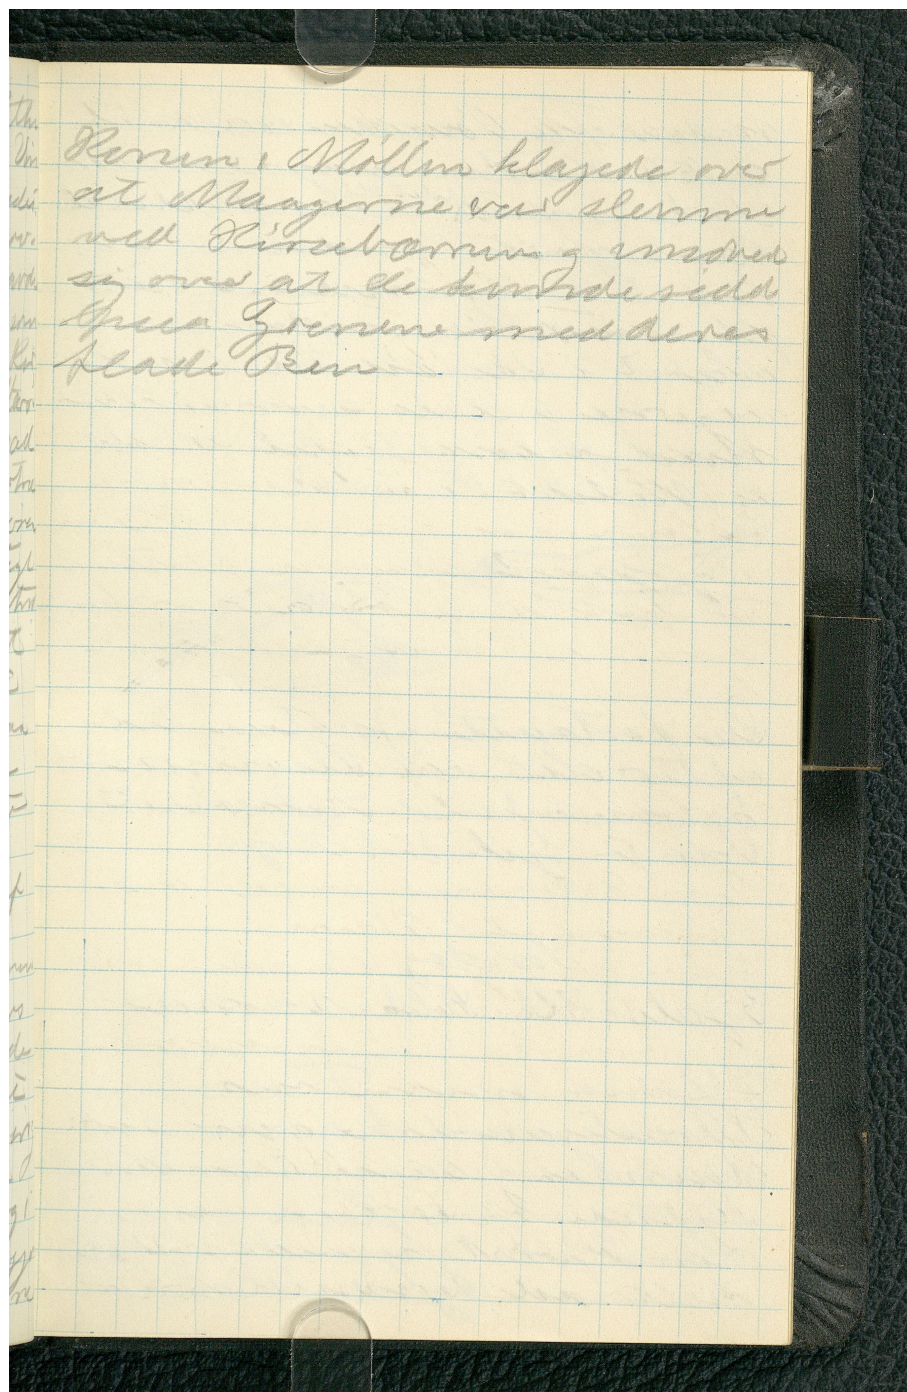 Konen i Møllen klagede over
at Maagerne var slemme
ved Kirsebærrene og undrede
sig over at de kunde sidde
paa Grenene med deres
flade Ben